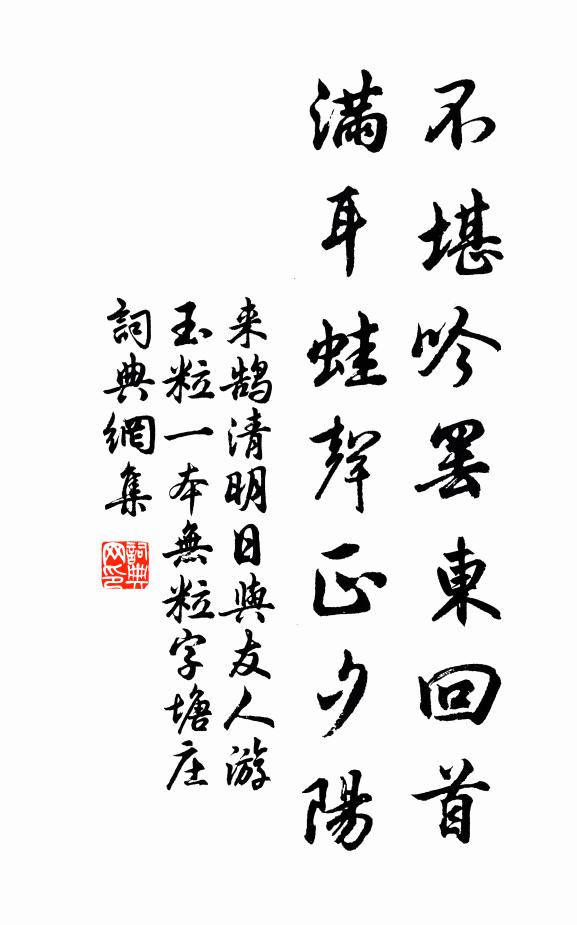 不堪吟罢東回首
满耳蛙聲正夕陽
来鹄清明日與友人游
玉粒一本無粒字塘庄
詞典網集
詞典网印